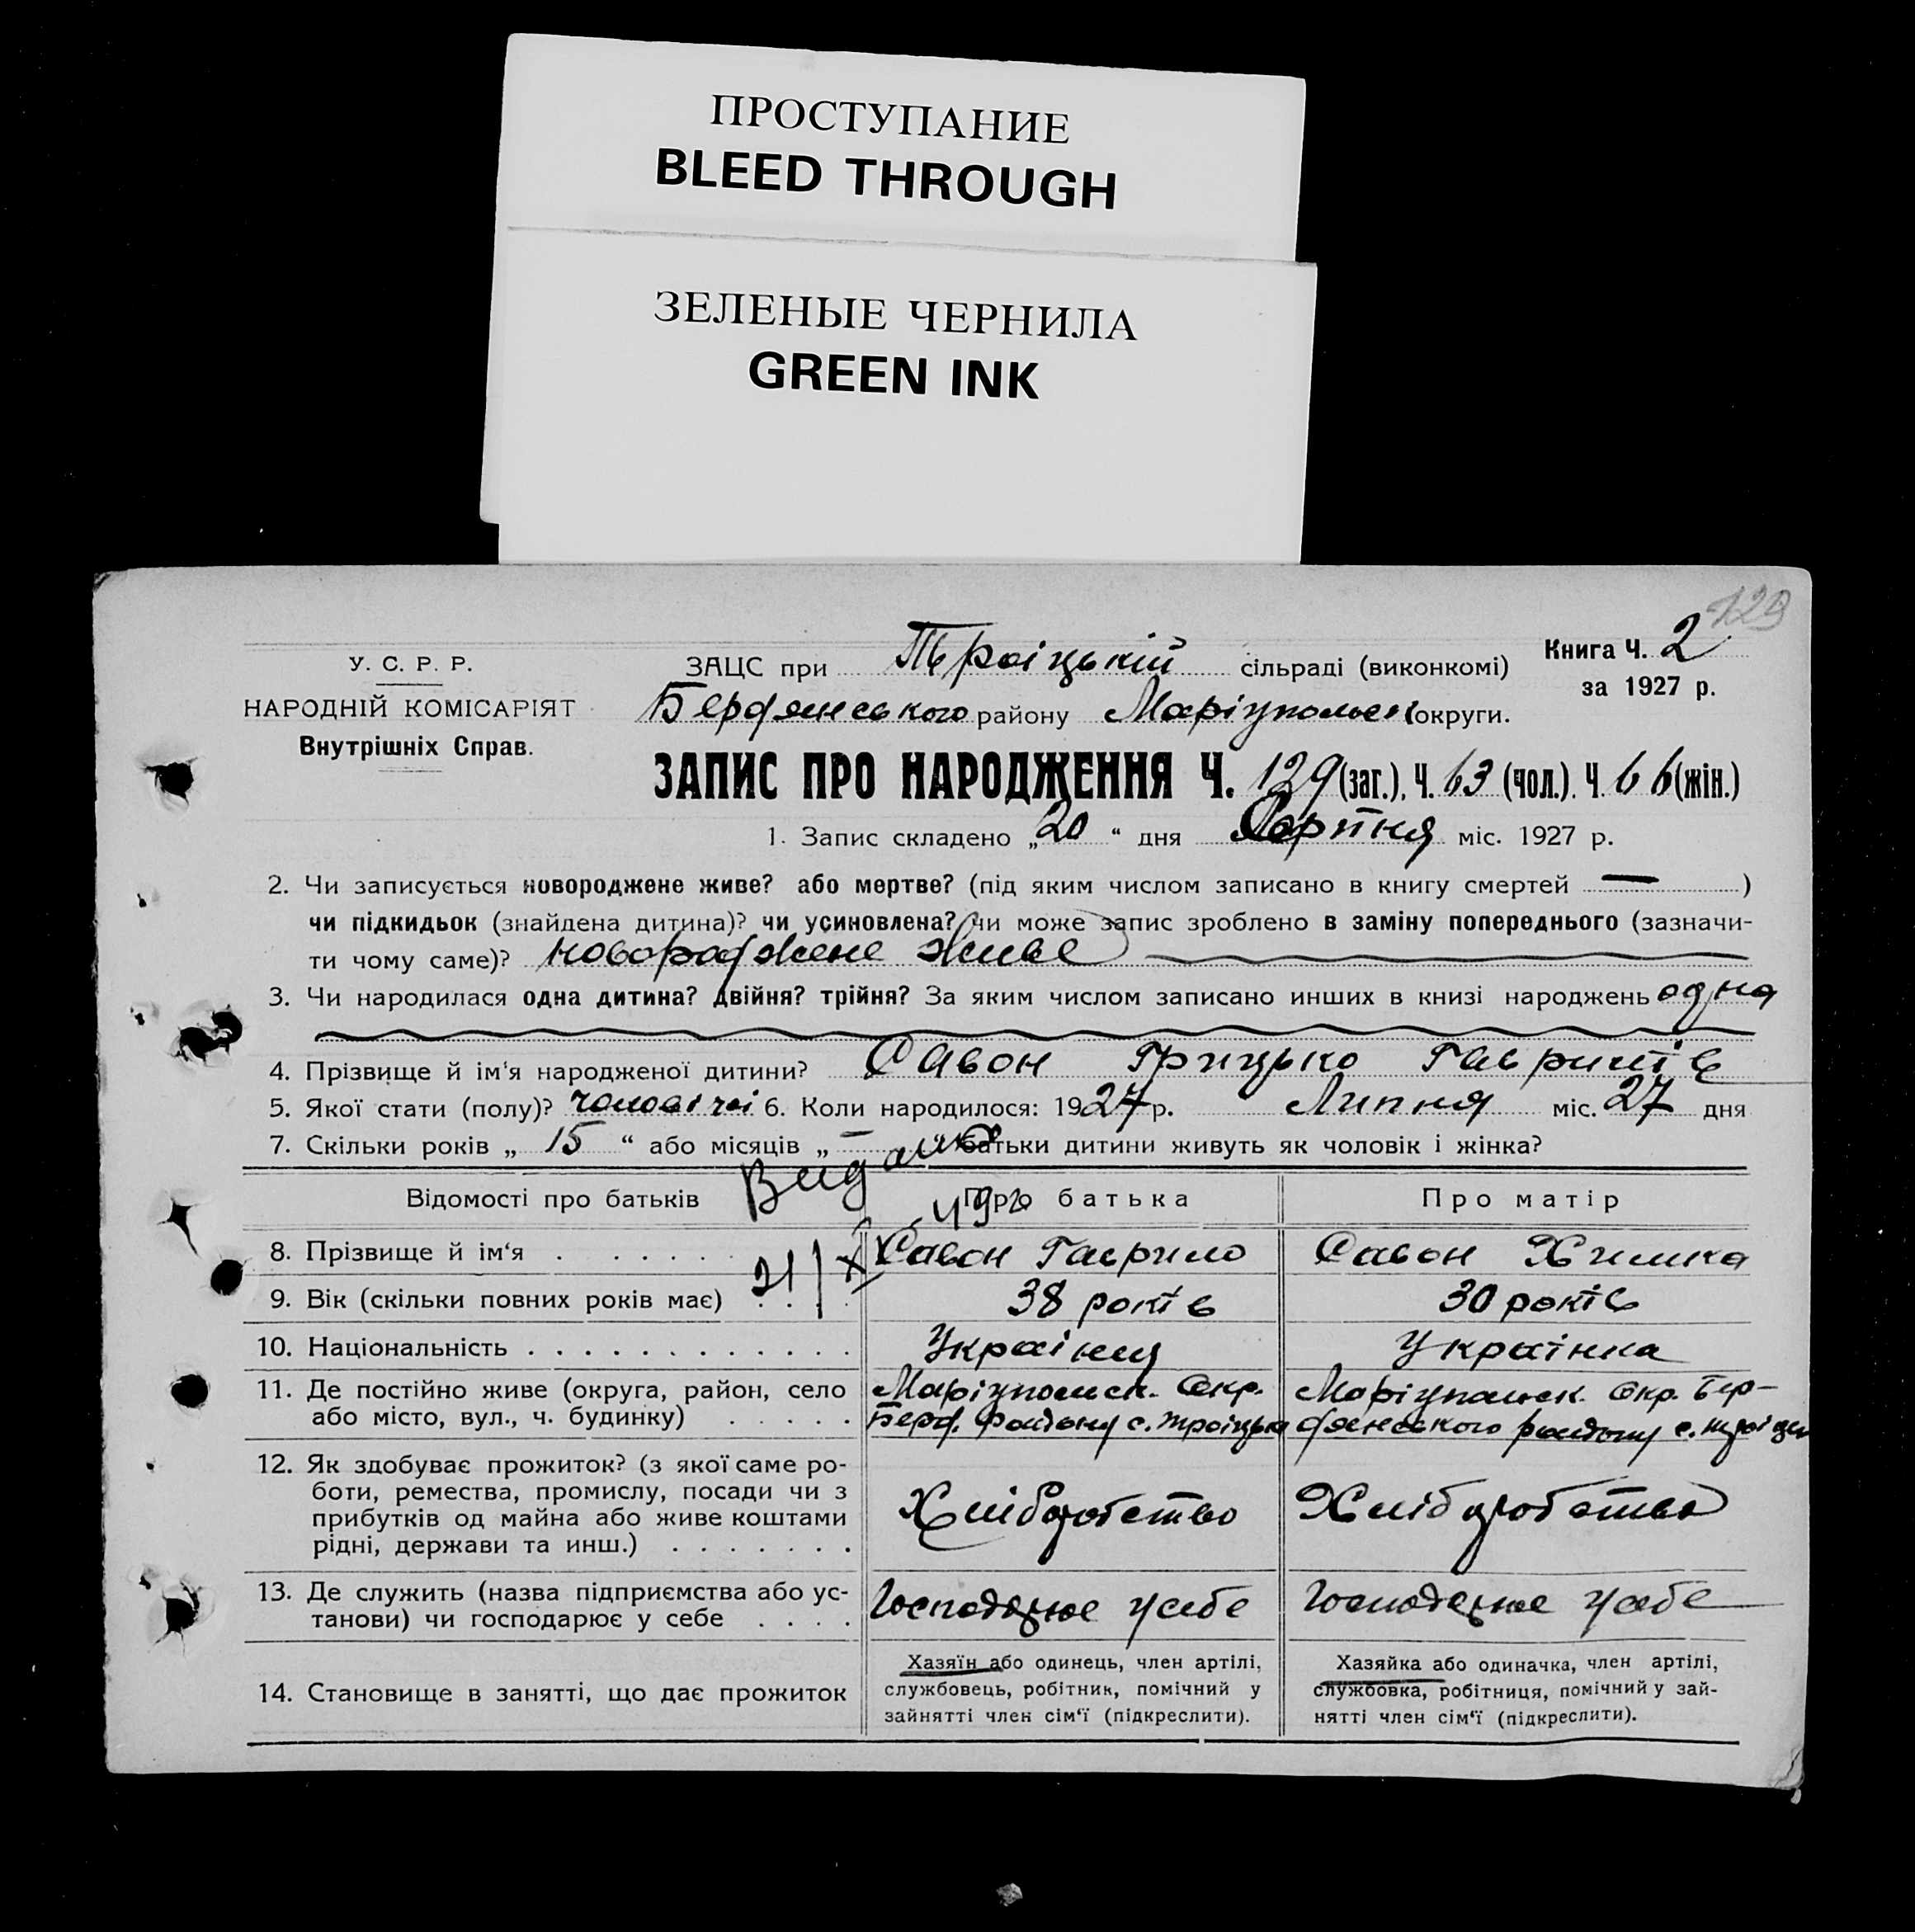 ПРОСТУПАНИЕ
BLEED THROUGH
ЗЕЛЕНЫЕ ЧЕРНИЛА
GREEN INK
129
У. С. Р. Р.
НАРОДНІЙ КОМІСАРІЯТ
Внутрішніх Справ.
ЗАЦС при Троіцькій сільраді (виконкомі)
Книга Ч. 2
за 1927 р.
Бердянського району Маріупольск округи.
ЗАПИС ПРО НАРОДЖЕННЯ Ч. 129 (заг.), Ч. 63 (чол.). Ч. 66 (жін.)
1. Запис складено „20“ дня Серпня міс. 1927 р.
2. Чи записується новороджене живе? або мертве? (під яким числом записано в книгу смертей —)
чи підкидьок (знайдена дитина)? чи усиновлена? чи може запис зроблено в заміну попереднього (зазначи-
ти чому саме)? новороджене живе
3. Чи народилася одна дитина? двійня? трійня? За яким числом записано инших в книзі народжень одна
4. Прізвище й ім‘я народженої дитини? Савон Грицько Гаврилів
5. Якої стати (полу)? чоловічеі 6. Коли народилося: 1927 р. Липня міс. 27 дня
7. Скільки років „15“ або місяців „—“ батьки дитини живуть як чоловік і жінка?
Відомості про батьків Про батька Про матір
8. Прізвище й ім‘я . . . . . . Савон Гаврило Савон Химка
9. Вік (скільки повних років має) . . . 38 років 30 років
10. Національність . . . . . . . . . . . . Украінец Украінка
11. Де постійно живе (округа, район, село Маріупольск. Окр. Маріупольск. Окр. Бер-
або місто, вул., ч. будинку) . . . . . Берд. району с. Троіцьке дянського району с. Троіцьк
12. Як здобуває прожиток? (з якої саме ро-
боти, ремества, промислу, посади чи з
прибутків од майна або живе коштами
рідні, держави та инш.) . . . . . . . Хліборобство Хліборобство
13. Де служить (назва підприємства або ус-
танови) чи господарює у себе . . . . Господарює у себе Господарює у себе
14. Становище в занятті, що дає прожиток
Хазяїн або одинець, член артілі,
службовець, робітник, помічний у
зайнятті член сім‘ї (підкреслити).
Хазяйка або одиначка, член артілі,
службовка, робітниця, помічний у зай-
нятті член сім‘ї (підкреслити).